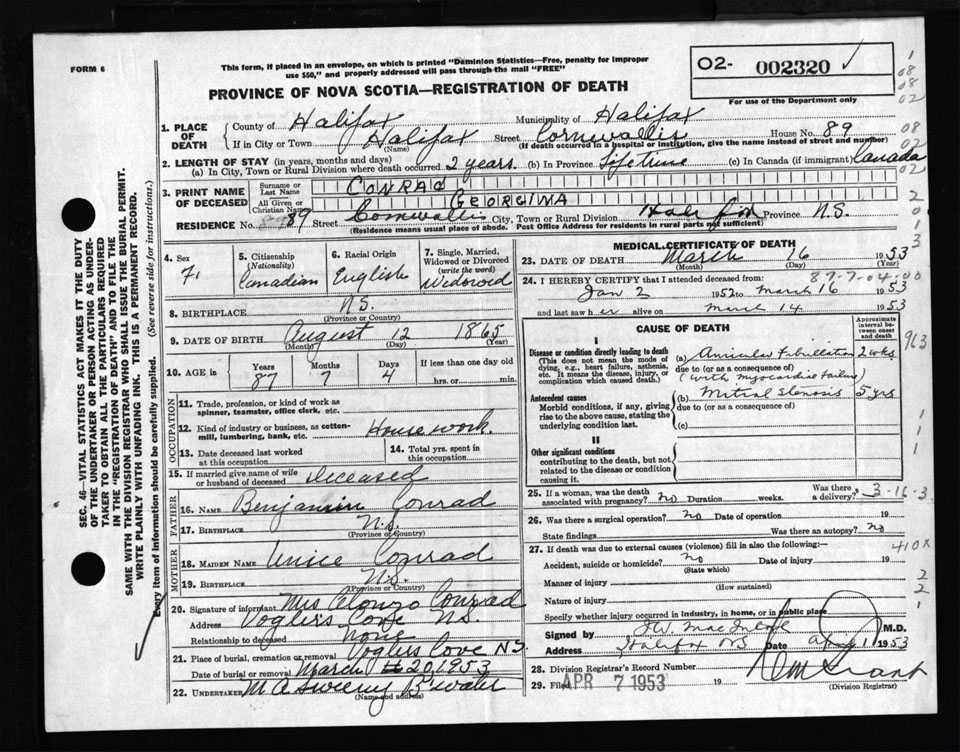 FORM 6
This form, if placed in an envelope, on which is printed "Dominion Statistics—Free, penalty for improper
use $50," and properly addressed will pass through the mail "FREE"
O2- 002320
For use of the Department only
PROVINCE OF NOVA SCOTIA—REGISTRATION OF DEATH
1. PLACE OF DEATH
County of Halifax Municipality of Halifax
If in City or Town Halifax Street Cornwallis House No. 89
(Name) (If death occurred in a hospital or institution, give the name instead of street and number)
2. LENGTH OF STAY (in years, months and days)
(a) In City, Town or Rural Division where death occurred 2 years. (b) In Province Lifetime (c) In Canada (if immigrant) Canada
3. PRINT NAME OF DECEASED
Surname or Last Name CONRAD
All Given or Christian Names GEORGINA
RESIDENCE No. 89 Street Cornwallis City, Town or Rural Division Halifax Province N.S.
(Residence means usual place of abode. Post Office Address for residents in rural parts not sufficient)
4. Sex
F.
5. Citizenship
(Nationality)
Canadian
6. Racial Origin
English
7. Single, Married, Widowed or Divorced
(write the word)
Widowed
8. BIRTHPLACE N.S.
(Province or Country)
9. DATE OF BIRTH August 12 1865
(Month) (Day) (Year)
10. AGE in Years Months Days If less than one day old
87 7 4 hrs. or min.
OCCUPATION
11. Trade, profession, or kind of work as spinner, teamster, office clerk, etc.
12. Kind of industry or business, as cotton-mill, lumbering, bank, etc. Housework.
13. Date deceased last worked at this occupation
14. Total yrs. spent in this occupation
15. If married give name of wife or husband of deceased deceased
FATHER
16. NAME Benjamin Conrad
17. BIRTHPLACE N.S.
(Province or Country)
MOTHER
18. MAIDEN NAME Unice Conrad
19. BIRTHPLACE N.S.
(Province or Country)
20. Signature of informant Mrs Alonzo Conrad
Address Voglers Cove N.S.
Relationship to deceased none
21. Place of burial, cremation or removal Voglers Cove N.S.
Date of burial or removal March 20, 1953
22. UNDERTAKER M A Sweeny B'water
(Name and address)
MEDICAL CERTIFICATE OF DEATH
23. DATE OF DEATH March 16 1953
(Month) (Day) (Year)
87-7-04-00
24. I HEREBY CERTIFY that I attended deceased from:
Jan 2 1952 to March 16 1953
and last saw her alive on March 14 1953
CAUSE OF DEATH
Approximate interval between onset and death
I
Disease or condition directly leading to death
(This does not mean the mode of dying, e.g., heart failure, asthenia, etc. It means the disease, injury, or complication which caused death.)
(a) Auricular Fibrillation 2 wks
due to (or as a consequence of)
(with myocardial failure)
Antecedent causes
Morbid conditions, if any, giving rise to the above cause, stating the underlying condition last.
(b) Mitral Stenosis 5 yrs
due to (or as a consequence of)
(c)
II
Other significant conditions
contributing to the death, but not related to the disease or condition causing it.
25. If a woman, was the death associated with pregnancy? no Duration weeks. Was there a delivery? 3-16-3
26. Was there a surgical operation? no Date of operation 19
State findings Was there an autopsy? no
27. If death was due to external causes (violence) fill in also the following:—
Accident, suicide or homicide? no Date of injury 19
(State which)
Manner of injury
(How sustained)
Nature of injury
Specify whether injury occurred in industry, in home, or in public place
Signed by M.D.
Address Halifax NS Date 1953
28. Division Registrar's Record Number
29. Filed APR 7 1953 19
(Division Registrar)
SEC. 46—VITAL STATISTICS ACT MAKES IT THE DUTY
OF THE UNDERTAKER OR PERSON ACTING AS UNDER-
TAKER TO OBTAIN ALL THE PARTICULARS REQUIRED
IN THE "REGISTRATION OF DEATH" AND TO FILE THE
SAME WITH THE DIVISION REGISTRAR WHO SHALL ISSUE THE BURIAL PERMIT.
WRITE PLAINLY WITH UNFADING INK. THIS IS A PERMANENT RECORD.
Every item of information should be carefully supplied. (See reverse side for instructions.)
1
08
08
02
08
02
02
2
0
1
3
3
963
1
1
1
410X
2
2
1